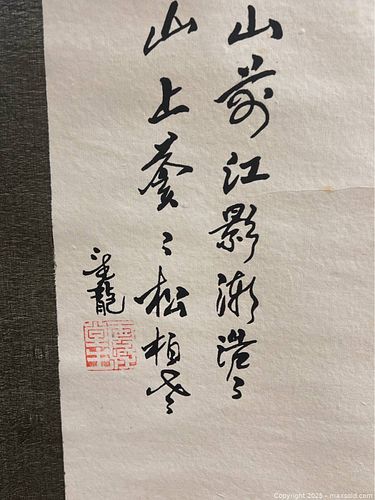 山前江影浩々
山上蒼々松柏老
龍
Copyright 2025 - maxsold.com